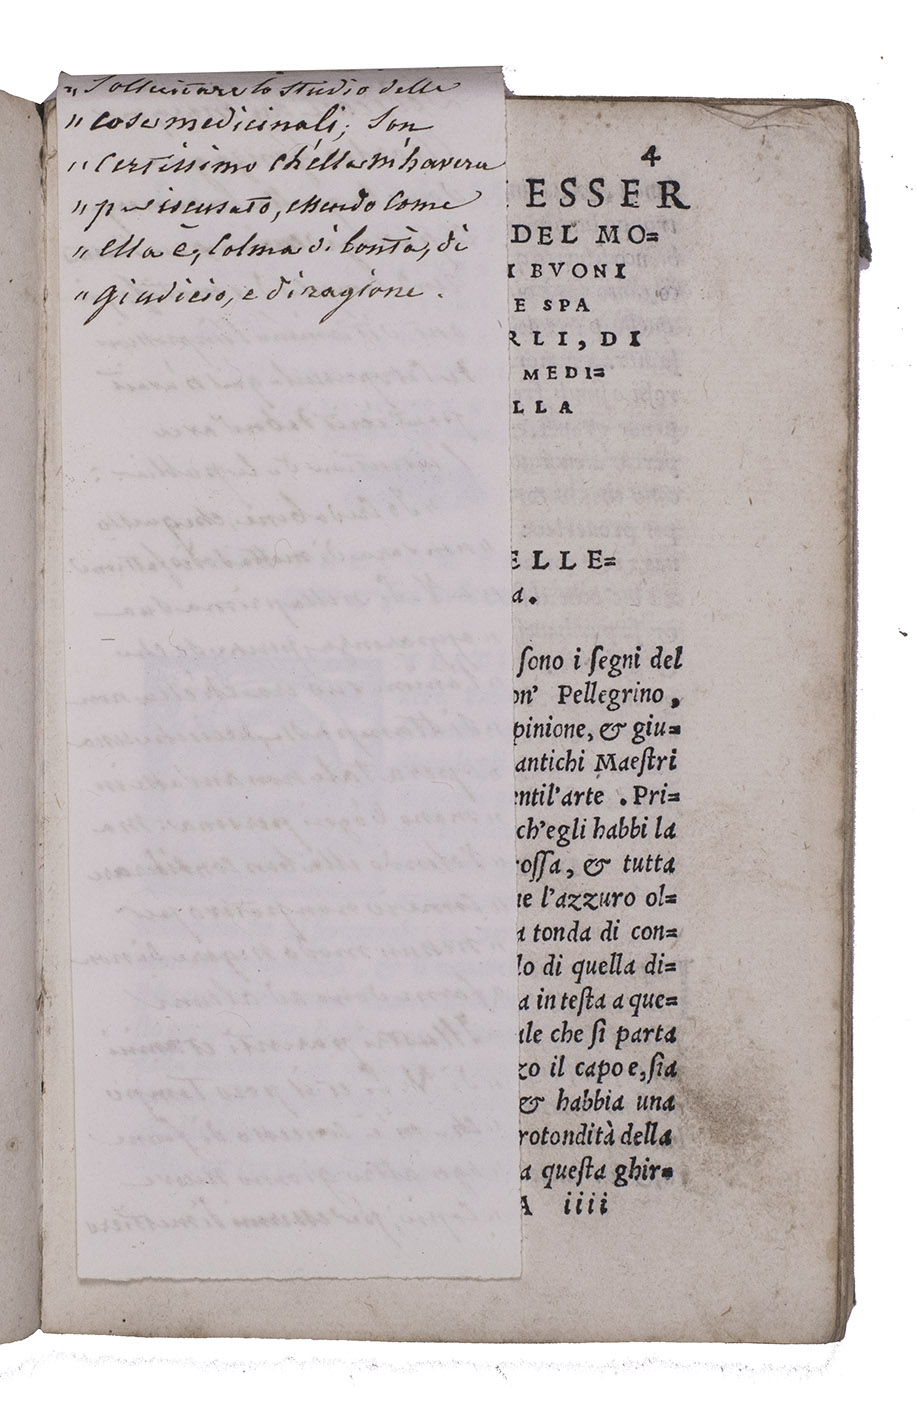 " Sollicitare lo studio delle
" cose medicinali; son
" certissimo ch'ella m'havera
" per iscusato, essendo come
" ella è, colma di bontà, di
" giudicio, e di ragione.
4
ESSER
DEL MO=
I BVONI
E SPA
RLI, DI
MEDI=
LLA
ELLE=
a.
sono i segni del
on' Pellegrino,
pinione, & giu=
antichi Maestri
entil'arte . Pri=
ch'egli habbi la
rossa, & tutta
ue l'azzuro ol=
a tonda di con=
lo di quella di=
a in testa a que=
ale che si parta
zo il capo e, sia
& habbia una
rotondità della
a questa ghir=
A iiii